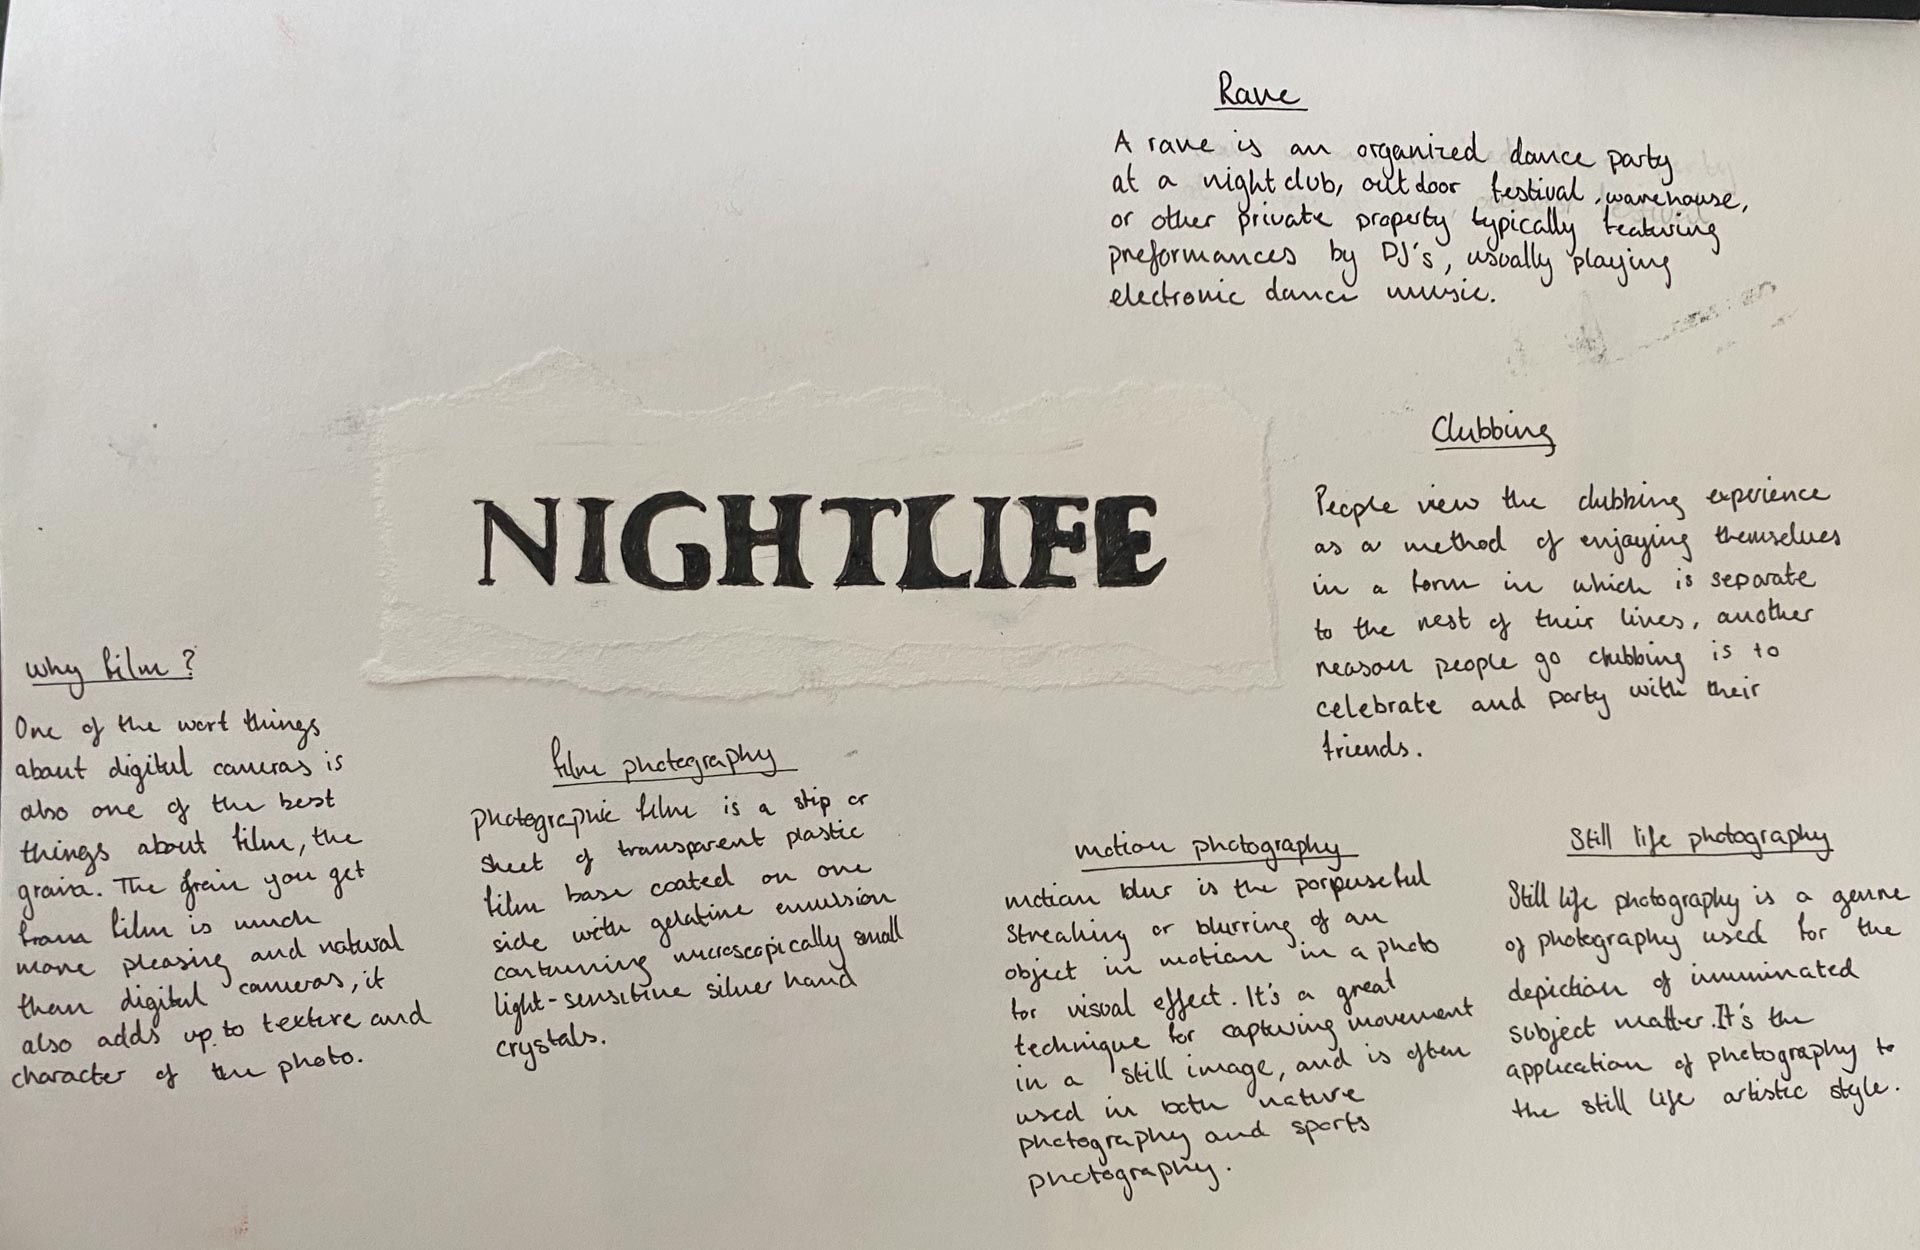 Rave
A rave is an organized dance party
at a nightclub, outdoor festival, warehouse,
or other private property typically featuring
preformances by DJ's, usually playing
electronic dance music.
NIGHTLIFE
Clubbing
People view the clubbing experience
as a method of enjoying themselves
in a form in which is separate
to the rest of their lives, another
reason people go clubbing is to
celebrate and party with their
friends.
why film?
One of the worst things
about digital cameras is
also one of the best
things about film, the
grain. The grain you get
from film is much
more pleasing and natural
than digital cameras, it
also adds up to texture and
character of the photo.
film photography
photographic film is a stip or
sheet of transparent plastic
film base coated on one
side with gelatine emulsion
containing microscopically small
light-sensitive silver hand
crystals.
motion photography
motion blur is the porpuseful
streaking or blurring of an
object in motion in a photo
for visual effect. It's a great
technique for capturing movement
in a still image, and is often
used in both nature
photography and sports
photography.
Still life photography
Still life photography is a genre
of photography used for the
depiction of imminated
subject matter. It's the
application of photography to
the still life artistic style.